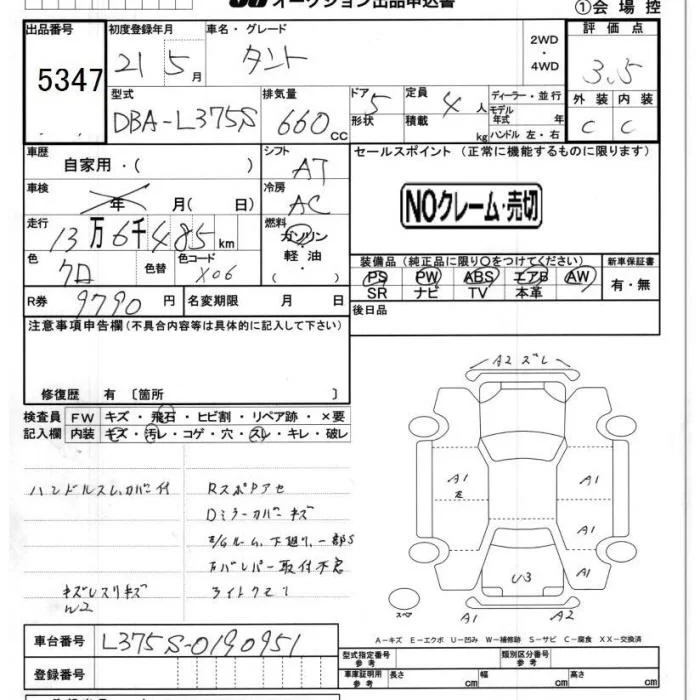 オークション出品申込書
①会場控
出品番号
5347
初度登録年月
21 5月
車名・グレード
タント
2WD
・
4WD
評価点
3.5
型式
DBA-L375S
排気量
660cc
ドア 5
形状
定員 4人
積載 kg
ディーラー・並行
モデル年式 年
ハンドル 左・右
外装 内装
C C
車歴
自家用・( )
シフト
AT
セールスポイント (正常に機能するものに限ります)
NOクレーム・売切
車検
年 月( 日)
冷房
AC
走行
13万6千485km
燃料
ガソリン
・
軽油
・
( )
色
クロ
色替
色コード
X06
装備品 (純正品に限り○をつけてください)
PS PW ABS エアB AW
SR ナビ TV 本革
新車保証書
有・無
R券 9790円
名変期限 月 日
後日品
注意事項申告欄 (不具合内容等は具体的に記入して下さい)
修復歴 有 〔箇所 〕
検査員
記入欄
FW キズ・飛石・ヒビ割・リペア跡・×要
内装 キズ・汚レ・コゲ・穴・スレ・キレ・破レ
ハンドルスレ、カバー付
RスポPアセ
Dミラーカバーキズ
キズレスリキズ
W2
A2 ズレ
A1
左
A1
A1
A1
U3
A1
A2
スペア
A-キズ E-エクボ U-凹み W-補修跡 S-サビ C-腐食 XX-交換済
車台番号
L375S-0190951
登録番号
型式指定番号
参考
類別区分番号
参考
車庫証明用
参考
長さ cm
幅 cm
高さ cm